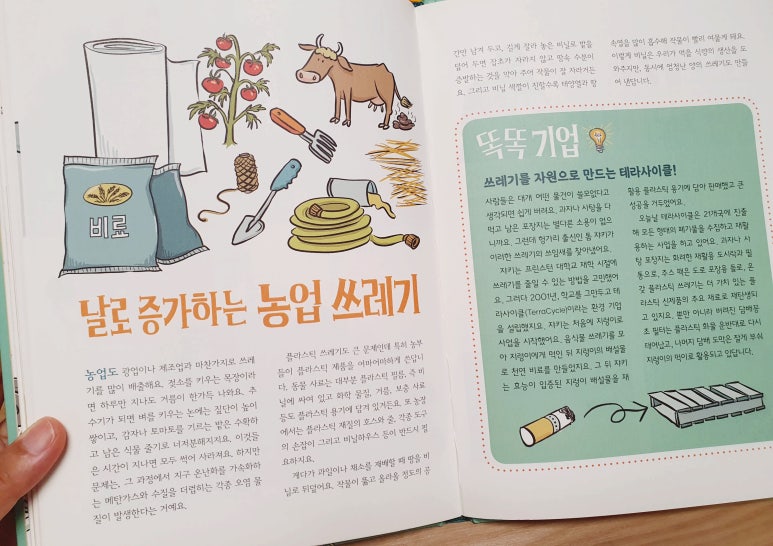 비료
날로 증가하는 농업 쓰레기
농업도 광업이나 제조업과 마찬가지로 쓰레
기를 많이 배출해요. 젖소를 키우는 목장이라
면 하루만 지나도 거름이 한가득 나와요. 추
수기가 되면 벼를 키우는 논에는 짚단이 높이
쌓이고, 감자나 토마토를 기르는 밭은 수확하
고 남은 식물 줄기로 너저분해지지요. 이것들
은 시간이 지나면 모두 썩어 사라져요. 하지만
문제는, 그 과정에서 지구 온난화를 가속화하
는 메탄가스와 수질을 더럽히는 각종 오염 물
질이 발생한다는 거예요.
플라스틱 쓰레기도 큰 문제인데 특히 농부
들이 플라스틱 제품을 어마어마하게 쓴답니
다. 동물 사료는 대부분 플라스틱 필름, 즉 비
닐에 싸여 있고 화학 물질, 거름, 보충 사료
등도 플라스틱 용기에 담겨 있거든요. 또 농장
에서는 플라스틱 재질의 호스와 줄, 각종 도구
의 손잡이 그리고 비닐하우스 등이 반드시 필
요하지요.
게다가 과일이나 채소를 재배할 때 땅을 비
닐로 뒤덮어요. 작물이 뚫고 올라올 정도의 공
간만 남겨 두고, 길게 잘라 놓은 비닐로 밭을
덮어 두면 잡초가 자라지 않고 땅속 수분이
증발하는 것을 막아 주어 작물이 잘 자라거든
요. 그리고 비닐 색깔이 진할수록 태양열과 땅
속열을 많이 흡수해 작물이 빨리 여물게 돼요.
이렇게 비닐은 우리가 먹을 식량의 생산을 도
와주지만, 동시에 엄청난 양의 쓰레기도 만들
어 낸답니다.
똑똑 기업
쓰레기를 자원으로 만드는 테라사이클!
사람들은 대개 어떤 물건이 쓸모없다고
생각되면 쉽게 버려요. 과자나 사탕을 다
먹고 남은 포장지는 별다른 소용이 없으
니까요. 그런데 헝가리 출신인 톰 자키가
이러한 쓰레기의 쓰임새를 찾아냈어요.
자키는 프린스턴 대학교 재학 시절에
쓰레기를 줄일 수 있는 방법을 고민했어
요. 그러다 2001년, 학교를 그만두고 테
라사이클(TerraCycle)이라는 환경 기업
을 설립했지요. 자키는 처음에 지렁이로
사업을 시작했어요. 음식물 쓰레기를 모
아 지렁이에게 먹인 뒤 지렁이의 배설물
로 천연 비료를 만들었지요. 그 뒤 자키
는 효능이 입증된 지렁이 배설물을 재
활용 플라스틱 용기에 담아 판매했고 큰
성공을 거두었어요.
오늘날 테라사이클은 21개국에 진출
해 모든 형태의 폐기물을 수집하고 재활
용하는 사업을 하고 있어요. 과자나 사
탕 포장지는 화려한 재활용 도시락과 필
통으로, 주스 팩은 도로 포장용 돌로, 온
갖 플라스틱 쓰레기는 더 가치 있는 플
라스틱 신제품의 주요 재료로 재탄생되
고 있지요. 뿐만 아니라 버려진 담배꽁
초 필터는 플라스틱 화물 운반대로 다시
태어났고, 나머지 담배 도막은 잘게 부숴
지렁이의 먹이로 활용되고 있답니다.